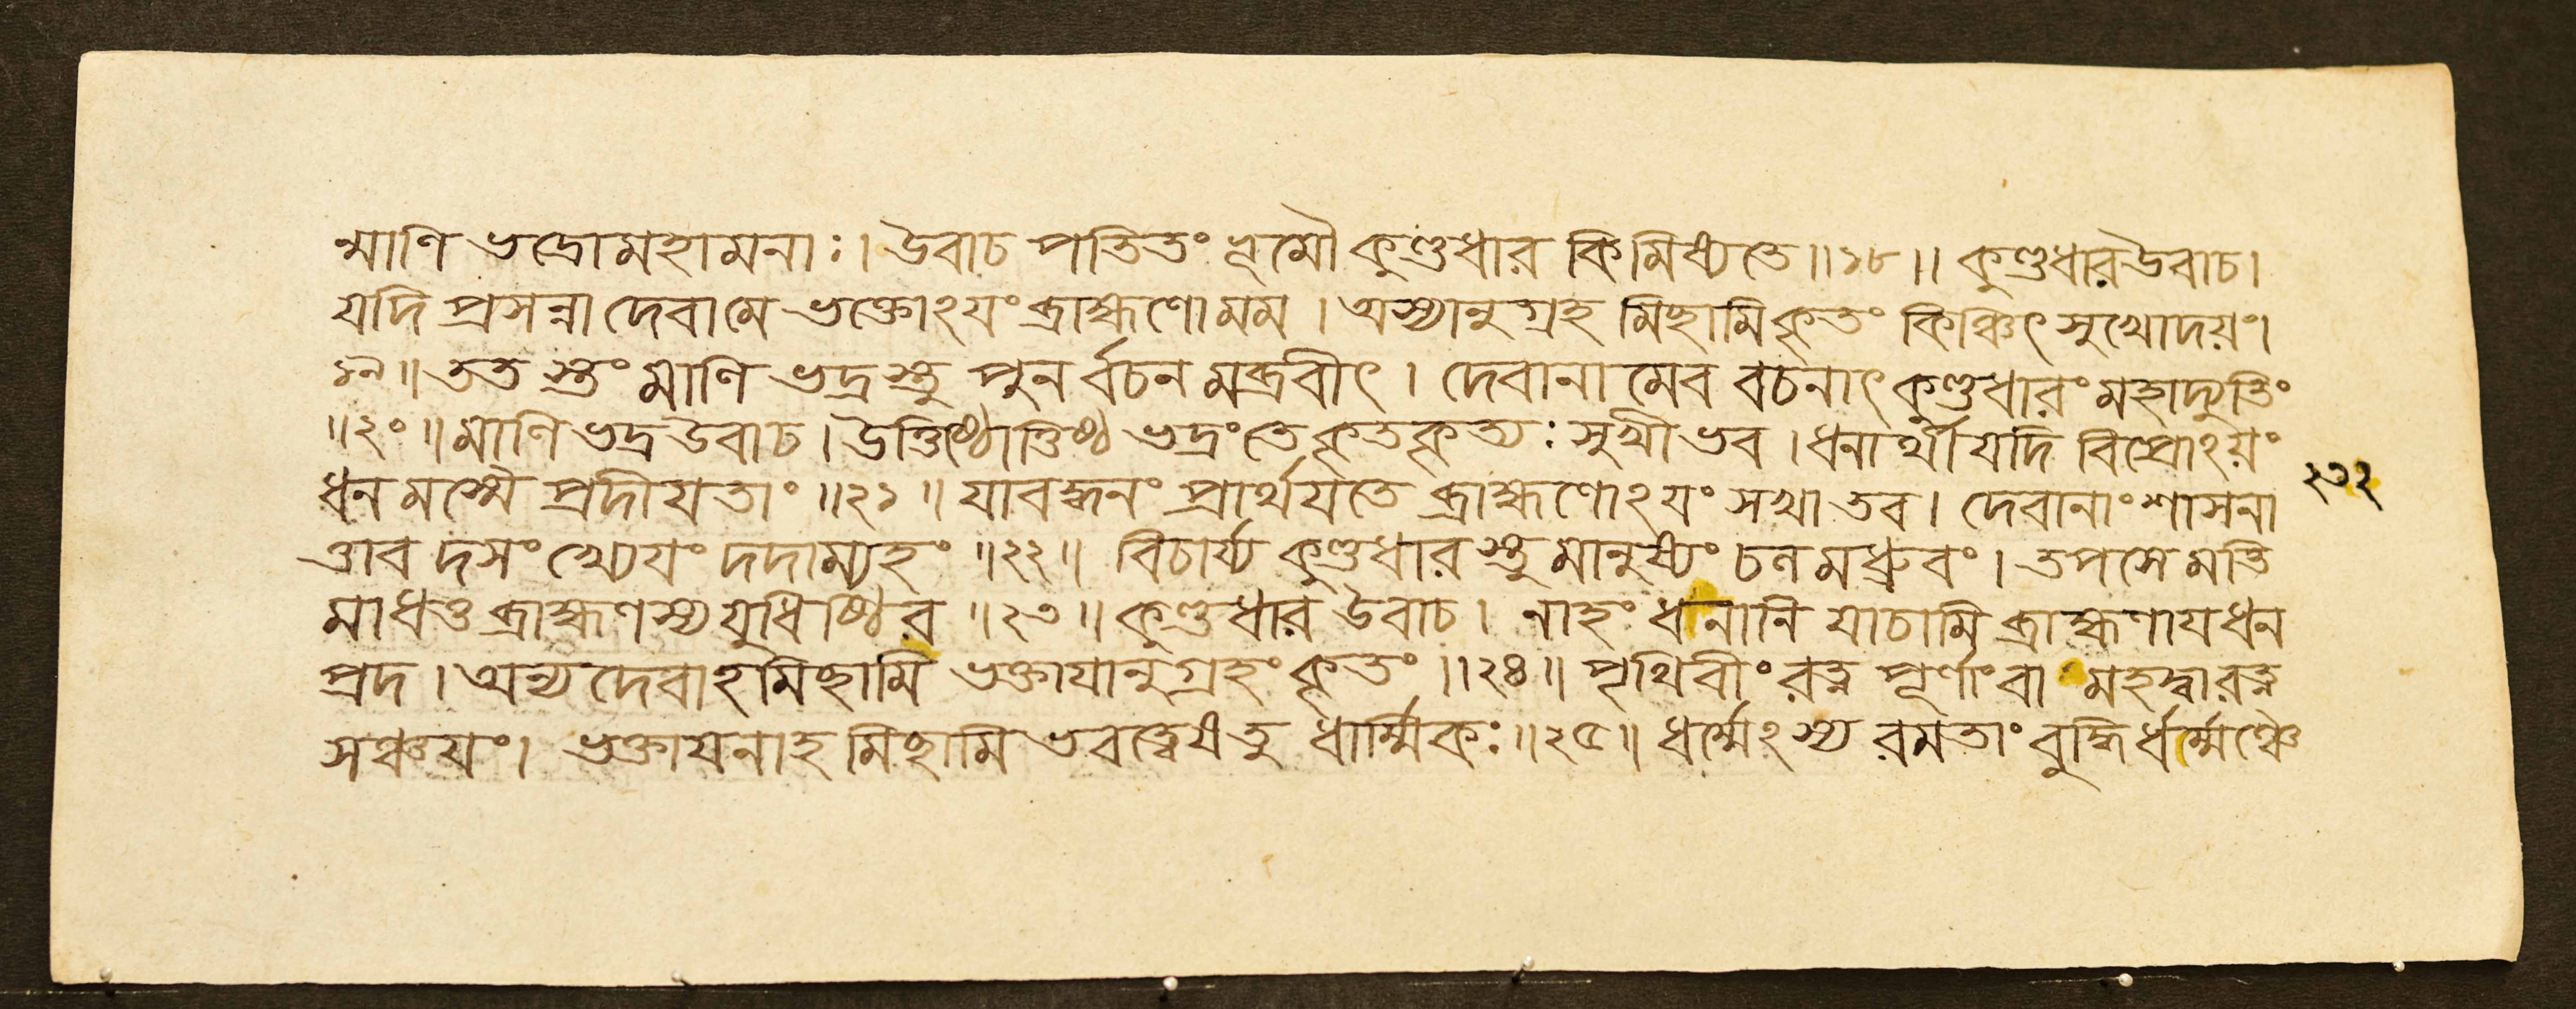 ন্মাণি ভদ্রোমহামনাঃ। উবাচ পতিতং ভূমৌ কুণ্ডধার কিমিষ্যতে॥১৮॥ কুণ্ডধারউবাচ।
যদি প্রসন্না দেবামে ভক্তোঽযং ব্রাহ্মণো মম । অস্যানুগ্রহ মিছামি কৃতং কিঞ্চিৎ সুখোদয়ং।
১৯॥ তত স্তং মাণি ভদ্রস্তু পুন র্বচন মব্রবীৎ । দেবানা মেব বচনাৎ কুণ্ডধারং মহাদ্যুতিং
॥২০॥ মাণি ভদ্র উবাচ । উত্তিষ্ঠোত্তিষ্ঠ ভদ্রং তে কৃতকৃত্যঃ সুখী ভব । ধনার্থী যদি বিপ্রোঽয়ং
ধন মস্মৈ প্রদীযতাং ॥২১॥ যাবদ্ধনং প্রার্থযতে ব্রাহ্মণোঽযং সখা তব । দেবানাং শাসনা
২৩২
ত্তাব দসং খ্যেযং দদাম্যহং ॥২২॥ বিচার্য্য কুণ্ডধার স্তু মানুষ্যং চল মধ্রুবং । তপসে মতি
মাধত্ত ব্রাহ্মণস্য যুধিষ্ঠির ॥২৩॥ কুণ্ডধার উবাচ । নাহং ধনানি যাচামি ব্রাহ্মণায ধন
প্রদ । অন্য দেবাহ মিছামি ভক্তাযানুগ্রহং কৃতং ॥২৪॥ পৃথিবীং রত্ন পূর্ণাং বা মহদ্বা রত্ন
সঞ্চযং। ভক্তায নাহ মিছামি ভবত্বেষ তু ধার্ম্মিকঃ॥২৫॥ ধর্ম্মেঽস্য রমতাং বুদ্ধি র্ধর্ম্মঞ্চৈ